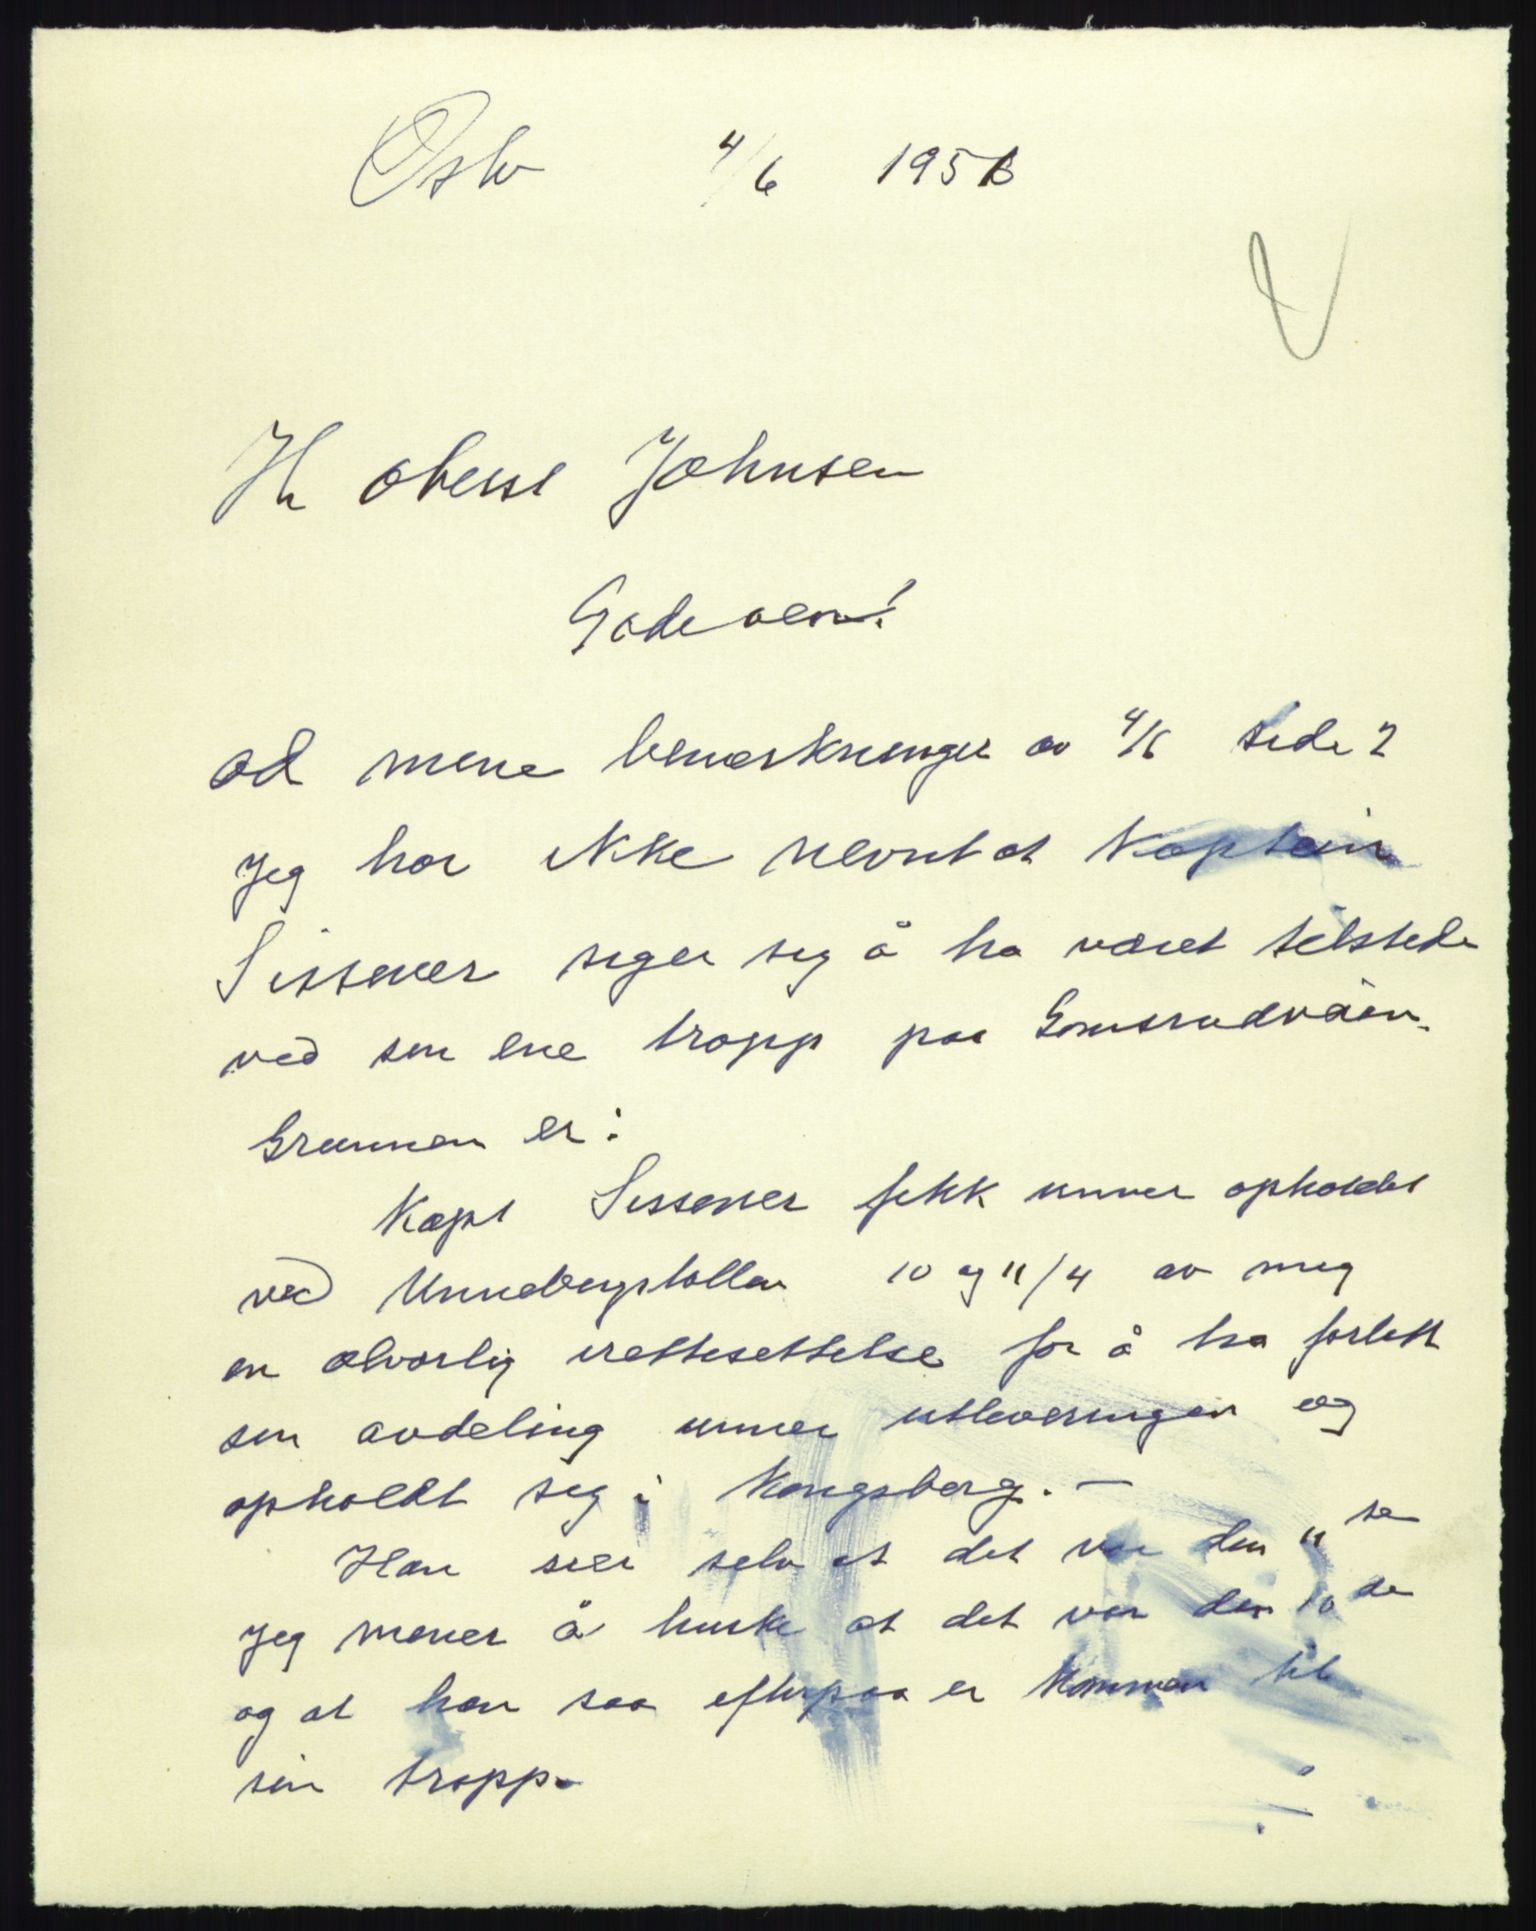 Oslo 4/6 1951
Hr oberst Johnsen
Gode venn!
ad mine bemerkninger av 4/6 side 2
Jeg har ikke nevnt at Kaptein
Sissener siger seg å ha været tilstede
ved sin ene tropp paa Gomsrudveien.
Grunnen er:
Kapt Sissener fikk unner opholdet
ved Unnebergkollen 10 og 11/4 av meg
en alvorlig irettesettelse for å ha forlatt
sin avdeling unner utleveringen og
opholdt seg i Kongsberg. —
Han sier selv at det var den 11 te
Jeg mener å huske at det var den 10 de
og at han saa efterpaa er kommen til
sin tropp.